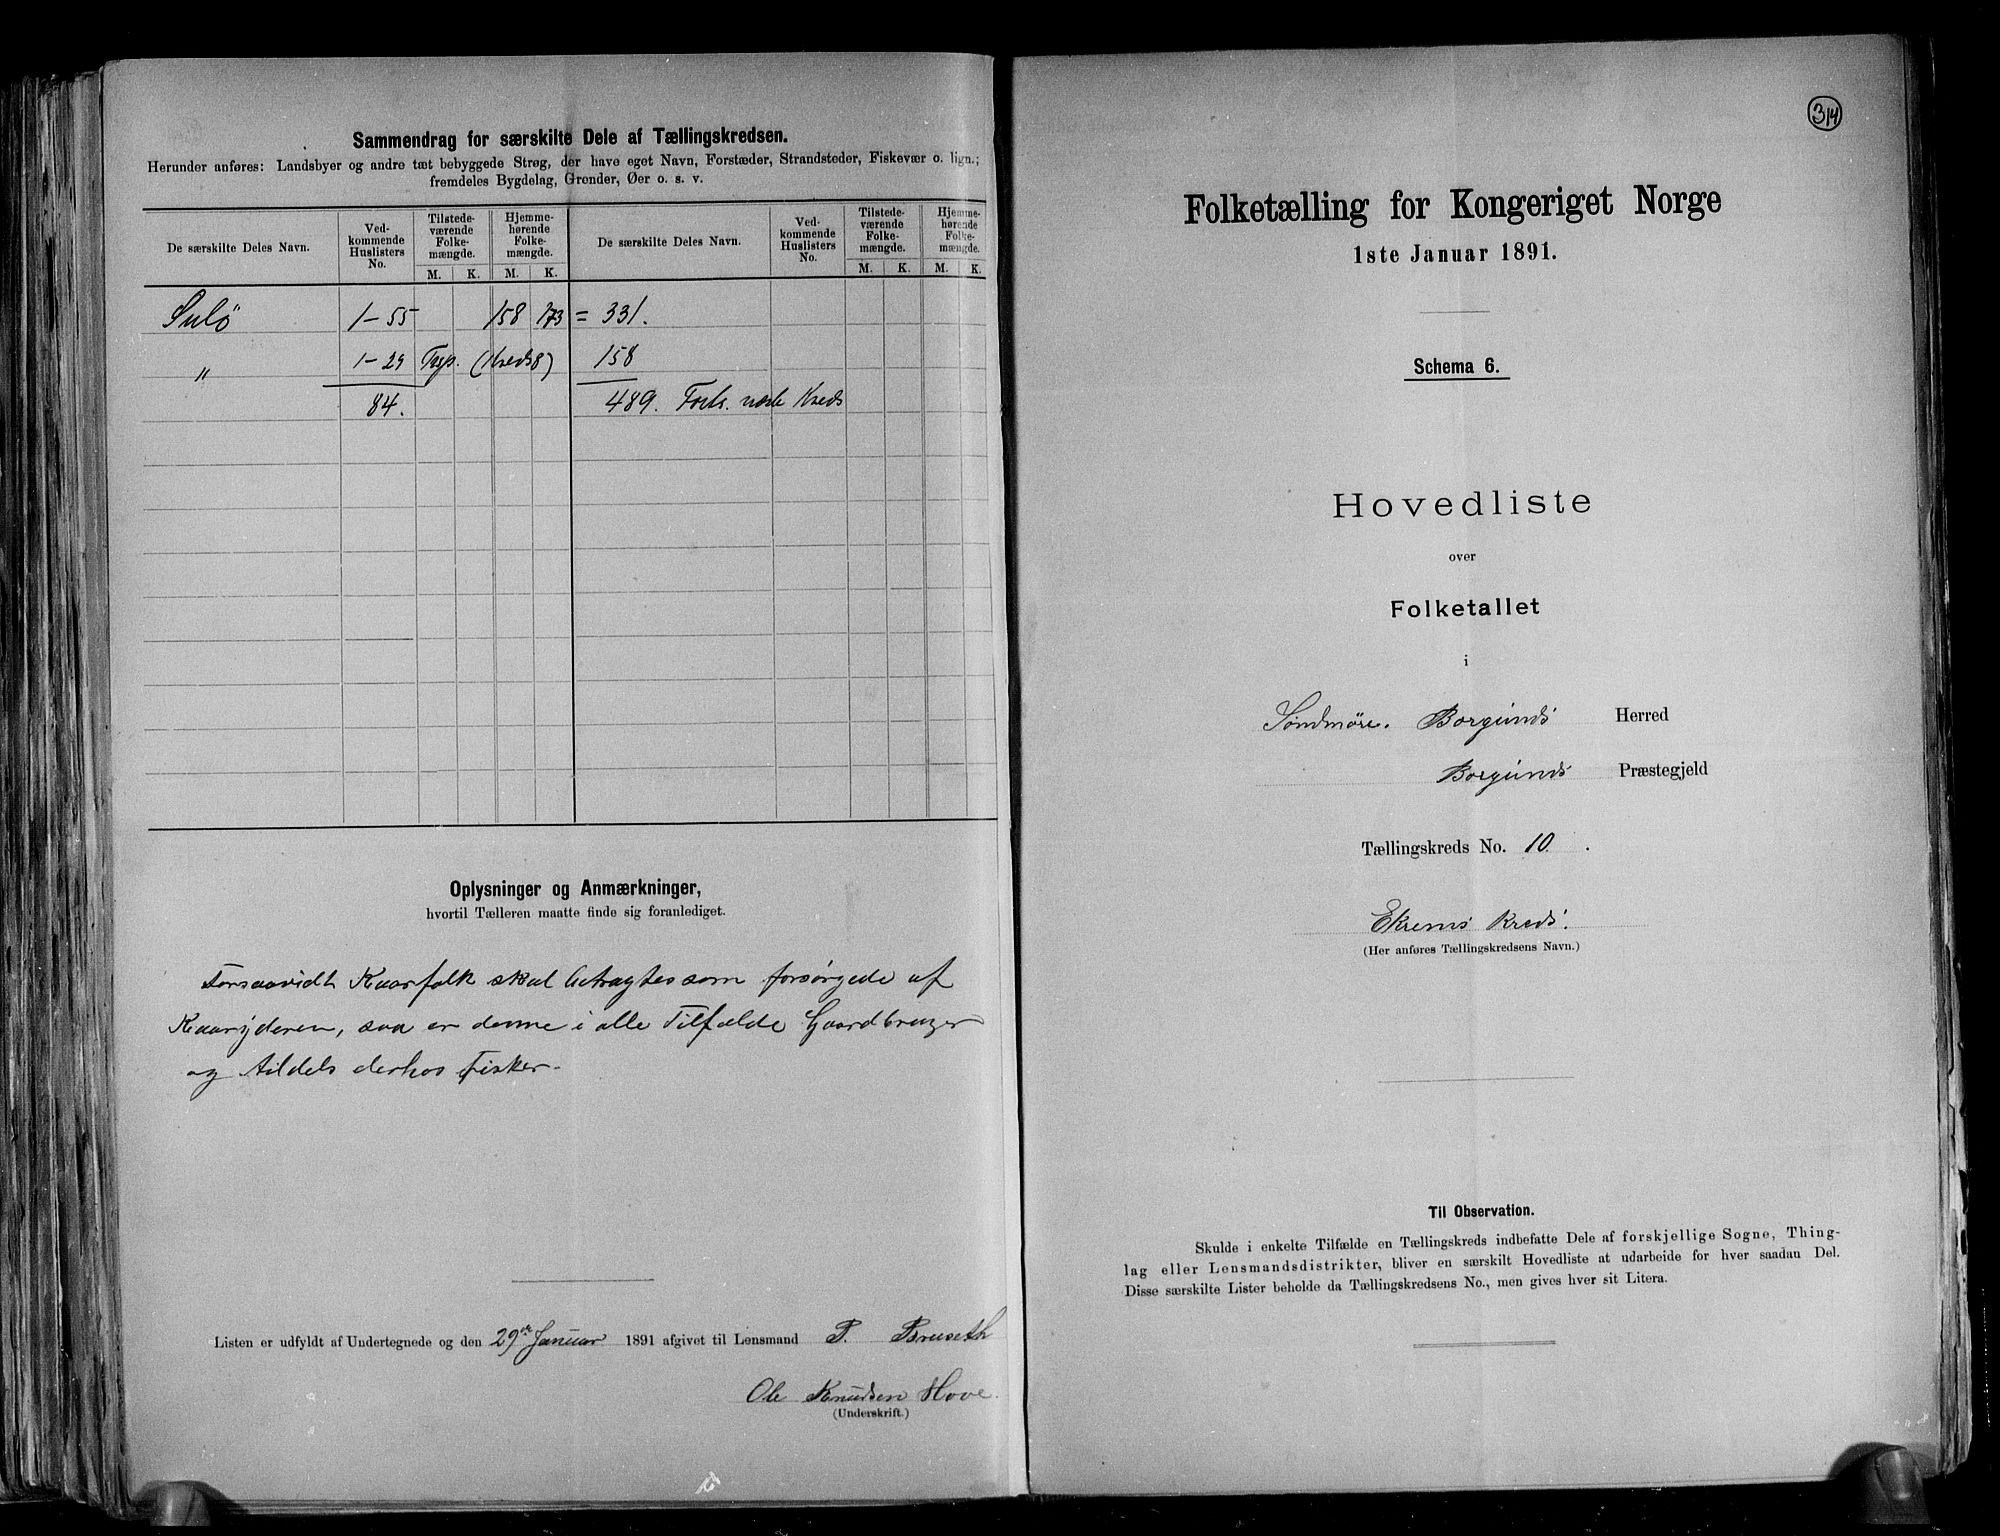 Sammendrag for særskilte Dele af Tællingskredsen.
Herunder anføres: Landsbyer og andre tæt bebyggede Strøg, der have eget Navn, Forstæder, Strandsteder, Fiskevær o. lign.;
fremdeles Bygdelag, Grender, Øer o. s. v.
De særskilte Deles Navn. Ved-kommende Huslisters No. Tilstede-værende Folke-mængde. Hjemme-hørende Folke-mængde. De særskilte Deles Navn. Ved-kommende Huslisters No. Tilstede-værende Folke-mængde. Hjemme-hørende Folke-mængde.
M. K. M. K. M. K. M. K.
Sulö 1-55 158 173 = 331.
" 1-29 (Kreds 8) 158
84. 489. Kreds
Oplysninger og Anmærkninger,
hvortil Tælleren maatte finde sig foranlediget.
Forsaavidt Kaarfolk skal betragtes som forsørgede af
Kaaryderen, saa er denne i alle Tilfælde Gaardbruger
og tildels derhos Fisker.
Listen er udfyldt af Undertegnede og den 29de Januar 1891 afgivet til Lensmand P. Bruseth
Ole Knudsen Hove.
(Underskrift.)
314
Folketælling for Kongeriget Norge
1ste Januar 1891.
Schema 6.
Hovedliste
over
Folketallet
i
Søndmøre. Borgunds Herred
Borgunds Præstegjeld
Tællingskreds No. 10.
Ekrems Kreds.
(Her anføres Tællingskredsens Navn.)
Til Observation.
Skulde i enkelte Tilfælde en Tællingskreds indbefatte Dele af forskjellige Sogne, Thing-
lag eller Lensmandsdistrikter, bliver en særskilt Hovedliste at udarbeide for hver saadan Del.
Disse særskilte Lister beholde da Tællingskredsens No., men gives hver sit Litera.